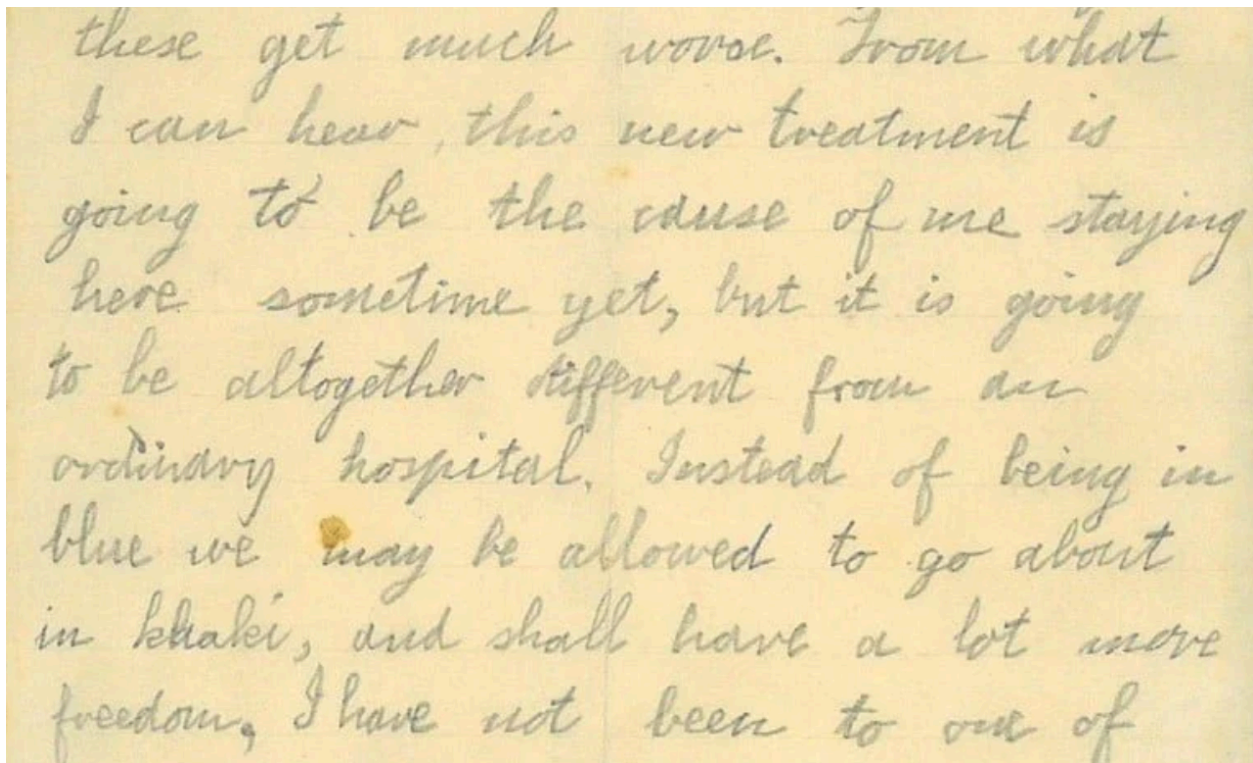 these get much worse. From what
I can hear, this new treatment is
going to be the cause of me staying
here sometime yet, but it is going
to be altogether different from an
ordinary hospital. Instead of being in
blue we may be allowed to go about
in khaki, and shall have a lot more
freedom, I have not been to one of